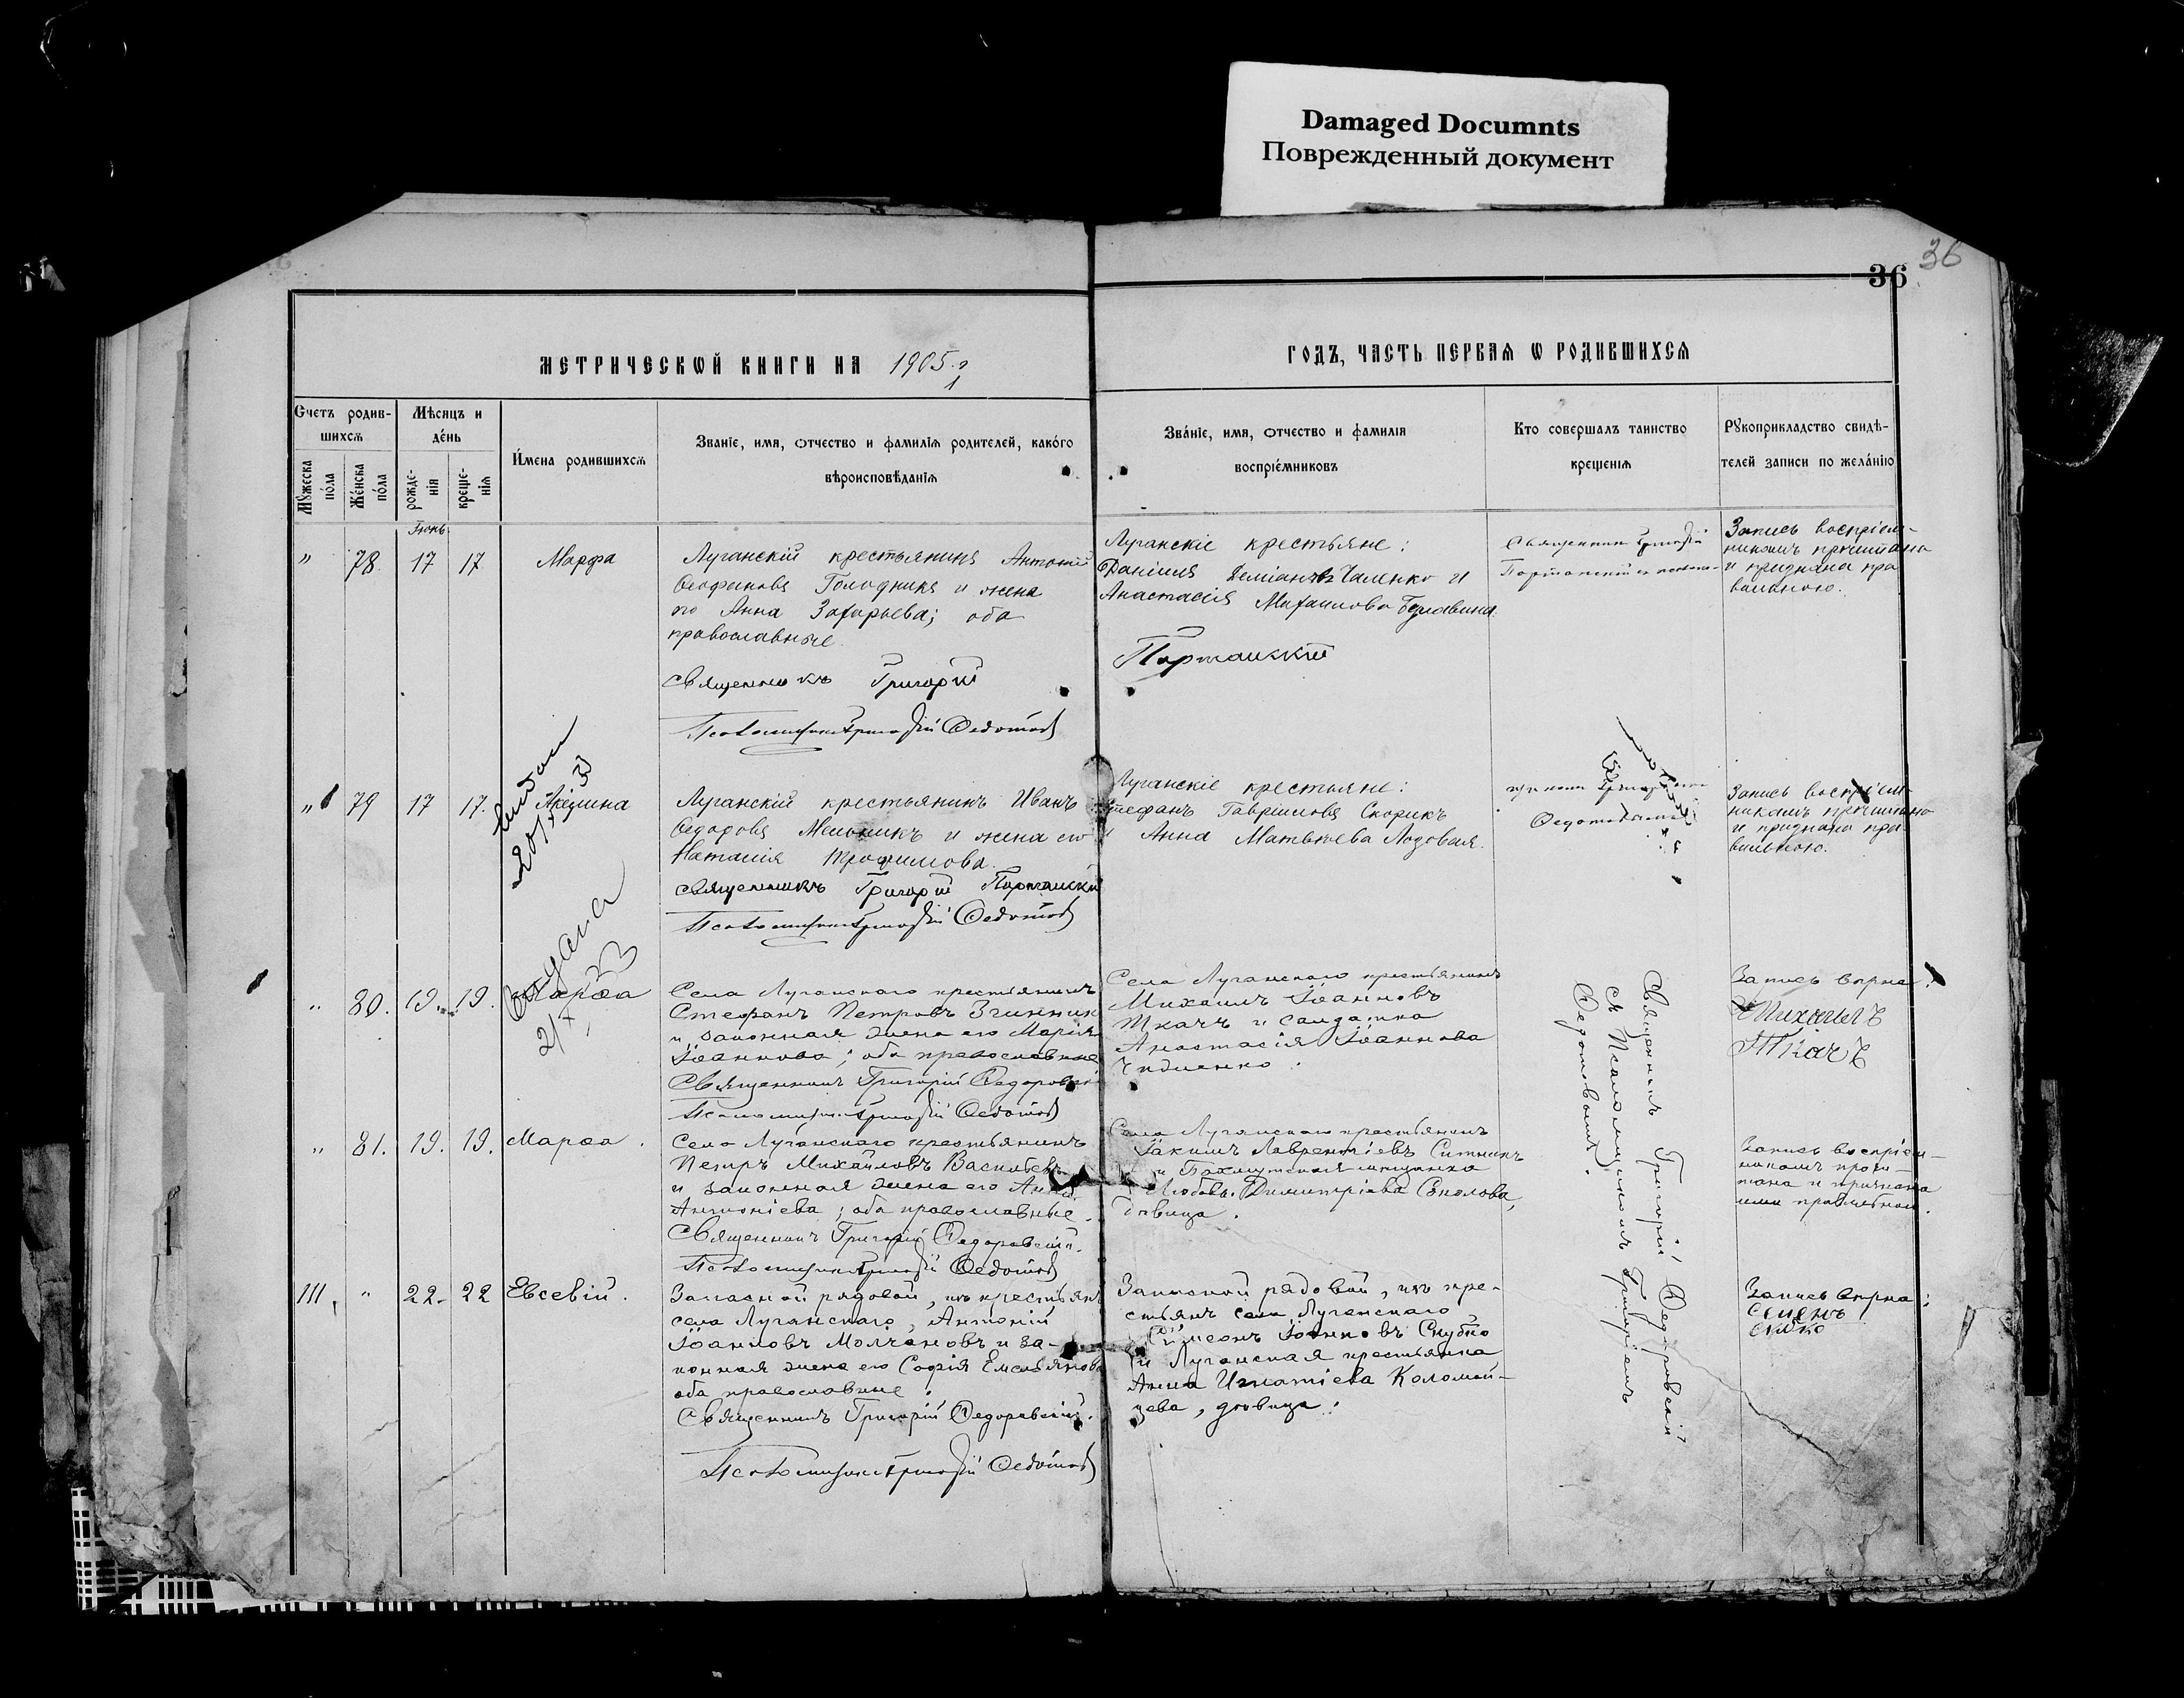 Damaged Documnts
Поврежденный документ
36
36
МЕТРИЧЕСКѠЙ КНИГИ НА 1905 г
ГОДЪ, ЧАСТЬ ПЕРВАѦ Ѡ РОДИВШИХСѦ
Счетъ родив-
шихсѧ
Мѣсяцъ и
де́нь
Мꙋжеска
по́ла
Же́нска
по́ла
рожде-
нія
креще-
нія
И́мена родившихсѧ
Званіе, имя, ѻтчество и фамиліѧ родителей, како́го
вѣроисповѣданіѧ
Зва́ніе, имя, ѻтчество и фамилія
воспріе́мниковъ
Кто совершалъ таинство
крещеніѧ
Рꙋкоприкладство свидѣ-
телей записи по жела́нію
Іюнь
" 78. 17 17 Марфа
Луганскій крестьянинъ Антоній
Голодникъ и жена
его Анна Захарьева; оба
православные.
Священникъ Григорій
Псаломщикъ Григорій Ѳедотовъ
Луганскіе крестьяне:
Даніилъ Деміановъ Чаленко и
Анастасія Михаилова
Портанскій
Священникъ Григорій
Портанскій съ
Запись воспріем-
никомъ прочитана
и признана пра
вильною.
" 79 17 17. Акилина
Луганскій крестьянинъ Иванъ
Ѳедоровъ Мельникъ и жена его
Наталія Трофимова.
Священникъ Григорій Портанскій
Псаломщикъ Григорій Ѳедотовъ
Луганскіе крестьяне:
Стефанъ Гавріиловъ Скорикъ
и Анна Матвѣева Лозовая.
Запись воспріем-
никомъ прочитана
и признана пра-
вильною.
" 80. 19. 19. Марѳа
Села Луганскаго крестьянинъ
Стефанъ Петровъ
и законная жена его Марія
Іоаннова; оба православные
Священникъ Григорій Ѳедоровскій
Псаломщикъ Григорій Ѳедотовъ
Села Луганскаго крестьянинъ
Михаилъ Іоанновъ
Ткачъ и солдатка
Анастасія Іоаннова
Запись вѣрна:
Михаилъ
Ткачъ
" 81. 19. 19. Марѳа.
Села Луганскаго крестьянинъ
Петръ Михайловъ Васильевъ
и законная жена его Анна
Антоніева; оба православные.
Священникъ Григорій Ѳедоровскій.
Псаломщикъ Григорій Ѳедотовъ
Села Луганскаго крестьянинъ
Іакимъ Лаврентіевъ Ситникъ
и Бахмутская мѣщанка
Любовь Димитріева Соколова,
дѣвица.
Запись воспріем-
никомъ прочи-
тана и признана
ими правильной.
111. " 22. 22 Евсевій.
Запасной рядовой, изъ крестьянъ
села Луганскаго, Антоній
Іоанновъ Молчановъ и за-
конная жена его Софія Емельянова
оба православные.
Священникъ Григорій Ѳедоровскій.
Псаломщикъ Григорій Ѳедотовъ
Запасной рядовой, изъ кре-
стьянъ села Луганскаго
Симеонъ Іоанновъ
и Луганская крестьянка
Анна Игнатіева Коломой-
цева, дѣвица.
Священникъ Григорій Ѳедоровскій
съ Псаломщикомъ Григоріемъ
Ѳедотовымъ.
Запись вѣрна:
Семенъ